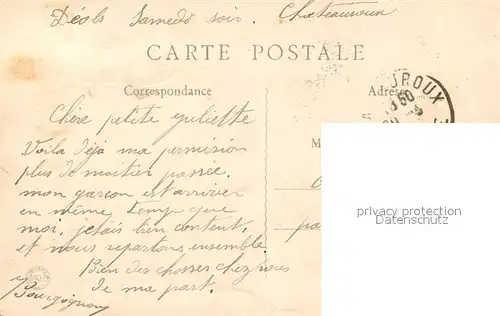 Déols Samedi soir. Chateauroux
CARTE POSTALE
Correspondance
Adresse
UROUX
Chère petite yuliette
Voila déja ma permision
plus de moitier passée.
mon garçon est arrivier
en même temp que
moi. jetais bien content,
et nous repartons ensemble.
Bien des chosses chez vous
de ma part.
Bourguignon
M
privacy protection